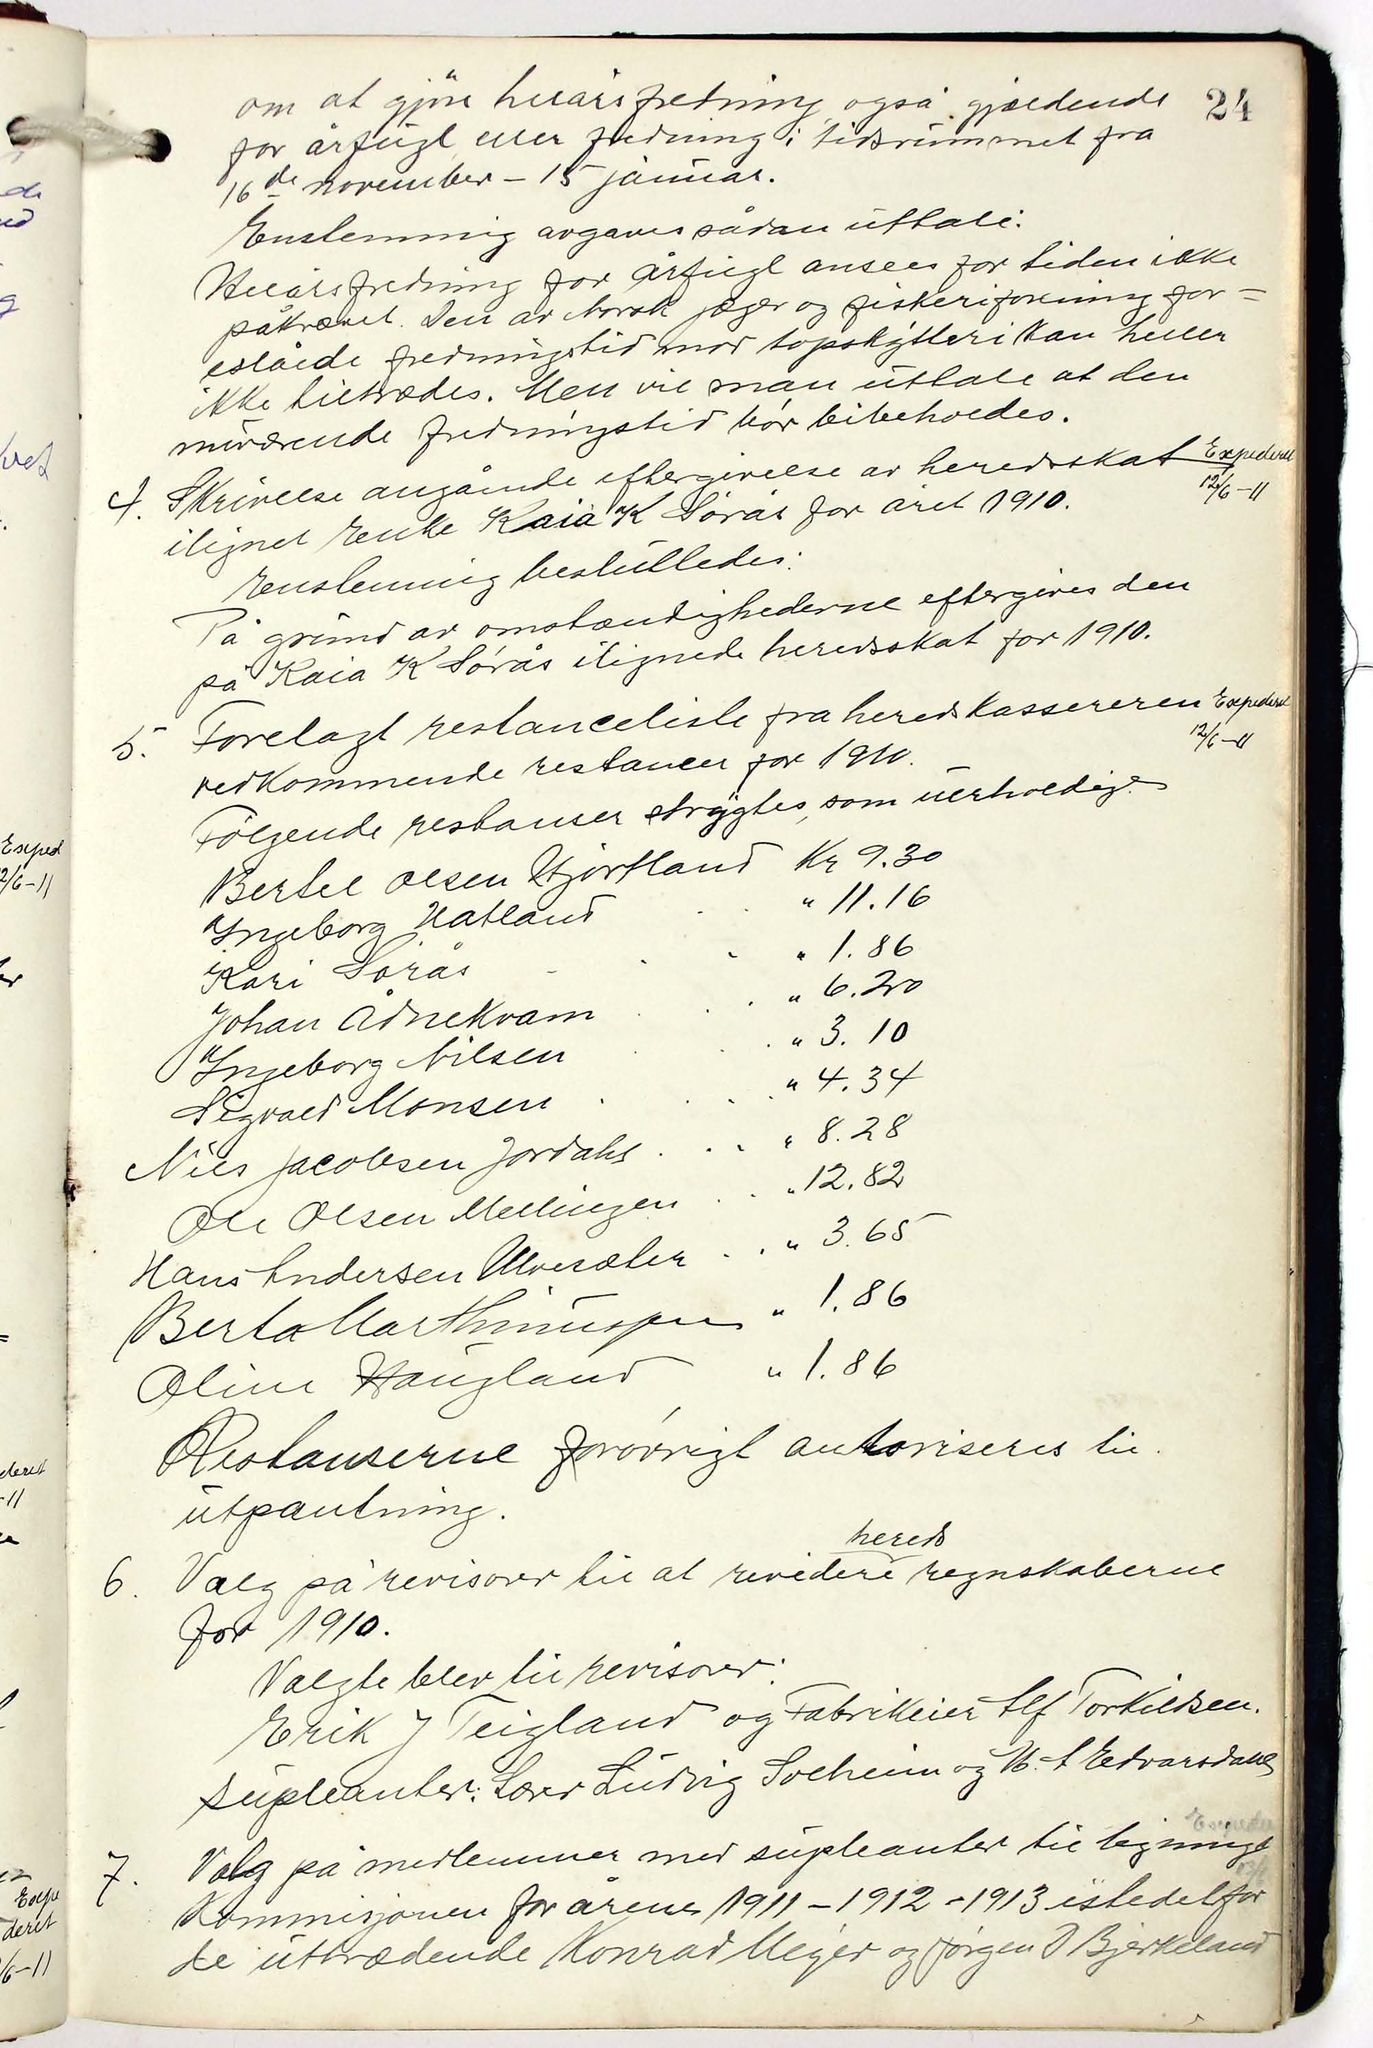 24
om at gjøre helårsfredning også gjældende
for årfugl eller fredning i tidsrummet fra
16de november – 15 januar.
Enstemmig avgaves sådan uttale:
Helårsfredning for årfugl ansees for tiden ikke
påkrævet. Den av Norsk jæger og fiskeriforening for=
eslåede fredningstid mod topskytteri kan heller
ikke tiltrædes. Men vil man uttale at den
nuværende fredningstid bør bibeholdes.
4. Skrivelse angående eftergivelse av heredsskat Expederet
12/6-11
ilignet Enke Kaia K Sørås for året 1910.
Enstemmig besluttedes:
På grund av omstændighederne eftergives den
på Kaia K Sørås ilignede heredsskat for 1910.
5. Forelagt restanceliste fra heredskassereren Expederet
12/6-11
vedkommende restancer for 1910.
Følgende restanser strygtes, som uerholdige
Bertel Olsen Hjørtland Kr 9.30
Ingeborg Hatland " 11.16
Kari Sørås " 1.86
Johan Ådnekvam " 6.20
Ingeborg Nilsen " 3.10
Sigvald Monsen " 4.34
Nils Jacobsen Jordahl " 8.28
Ole Olsen Mellingen " 12.82
Hans Andersen Ulvesæter " 3.65
Berta Marthinuspen " 1.86
Oline Haugland " 1.86
Restanserne forøvrigt autoriseres til
utpantning.
hereds
6. Valg på revisorer til at revidere regnskaberne
for 1910.
Valgte blev til revisorer:
Erik J Teigland og Fabrikeier Alf Torkildsen.
Supleanter: Lærer Ludvig Solheim og N. A Edvarsdahl
Expederet
7. Valg på medlemmer med supleanter til lignings
Kommisjonen for årene 1911 – 1912 – 1913 istedetfor
de uttrædende Konrad Meyer og Jørgen J Bjerkeland
Exped
12/6-11
deret
-11
Expe
deret
/6-11